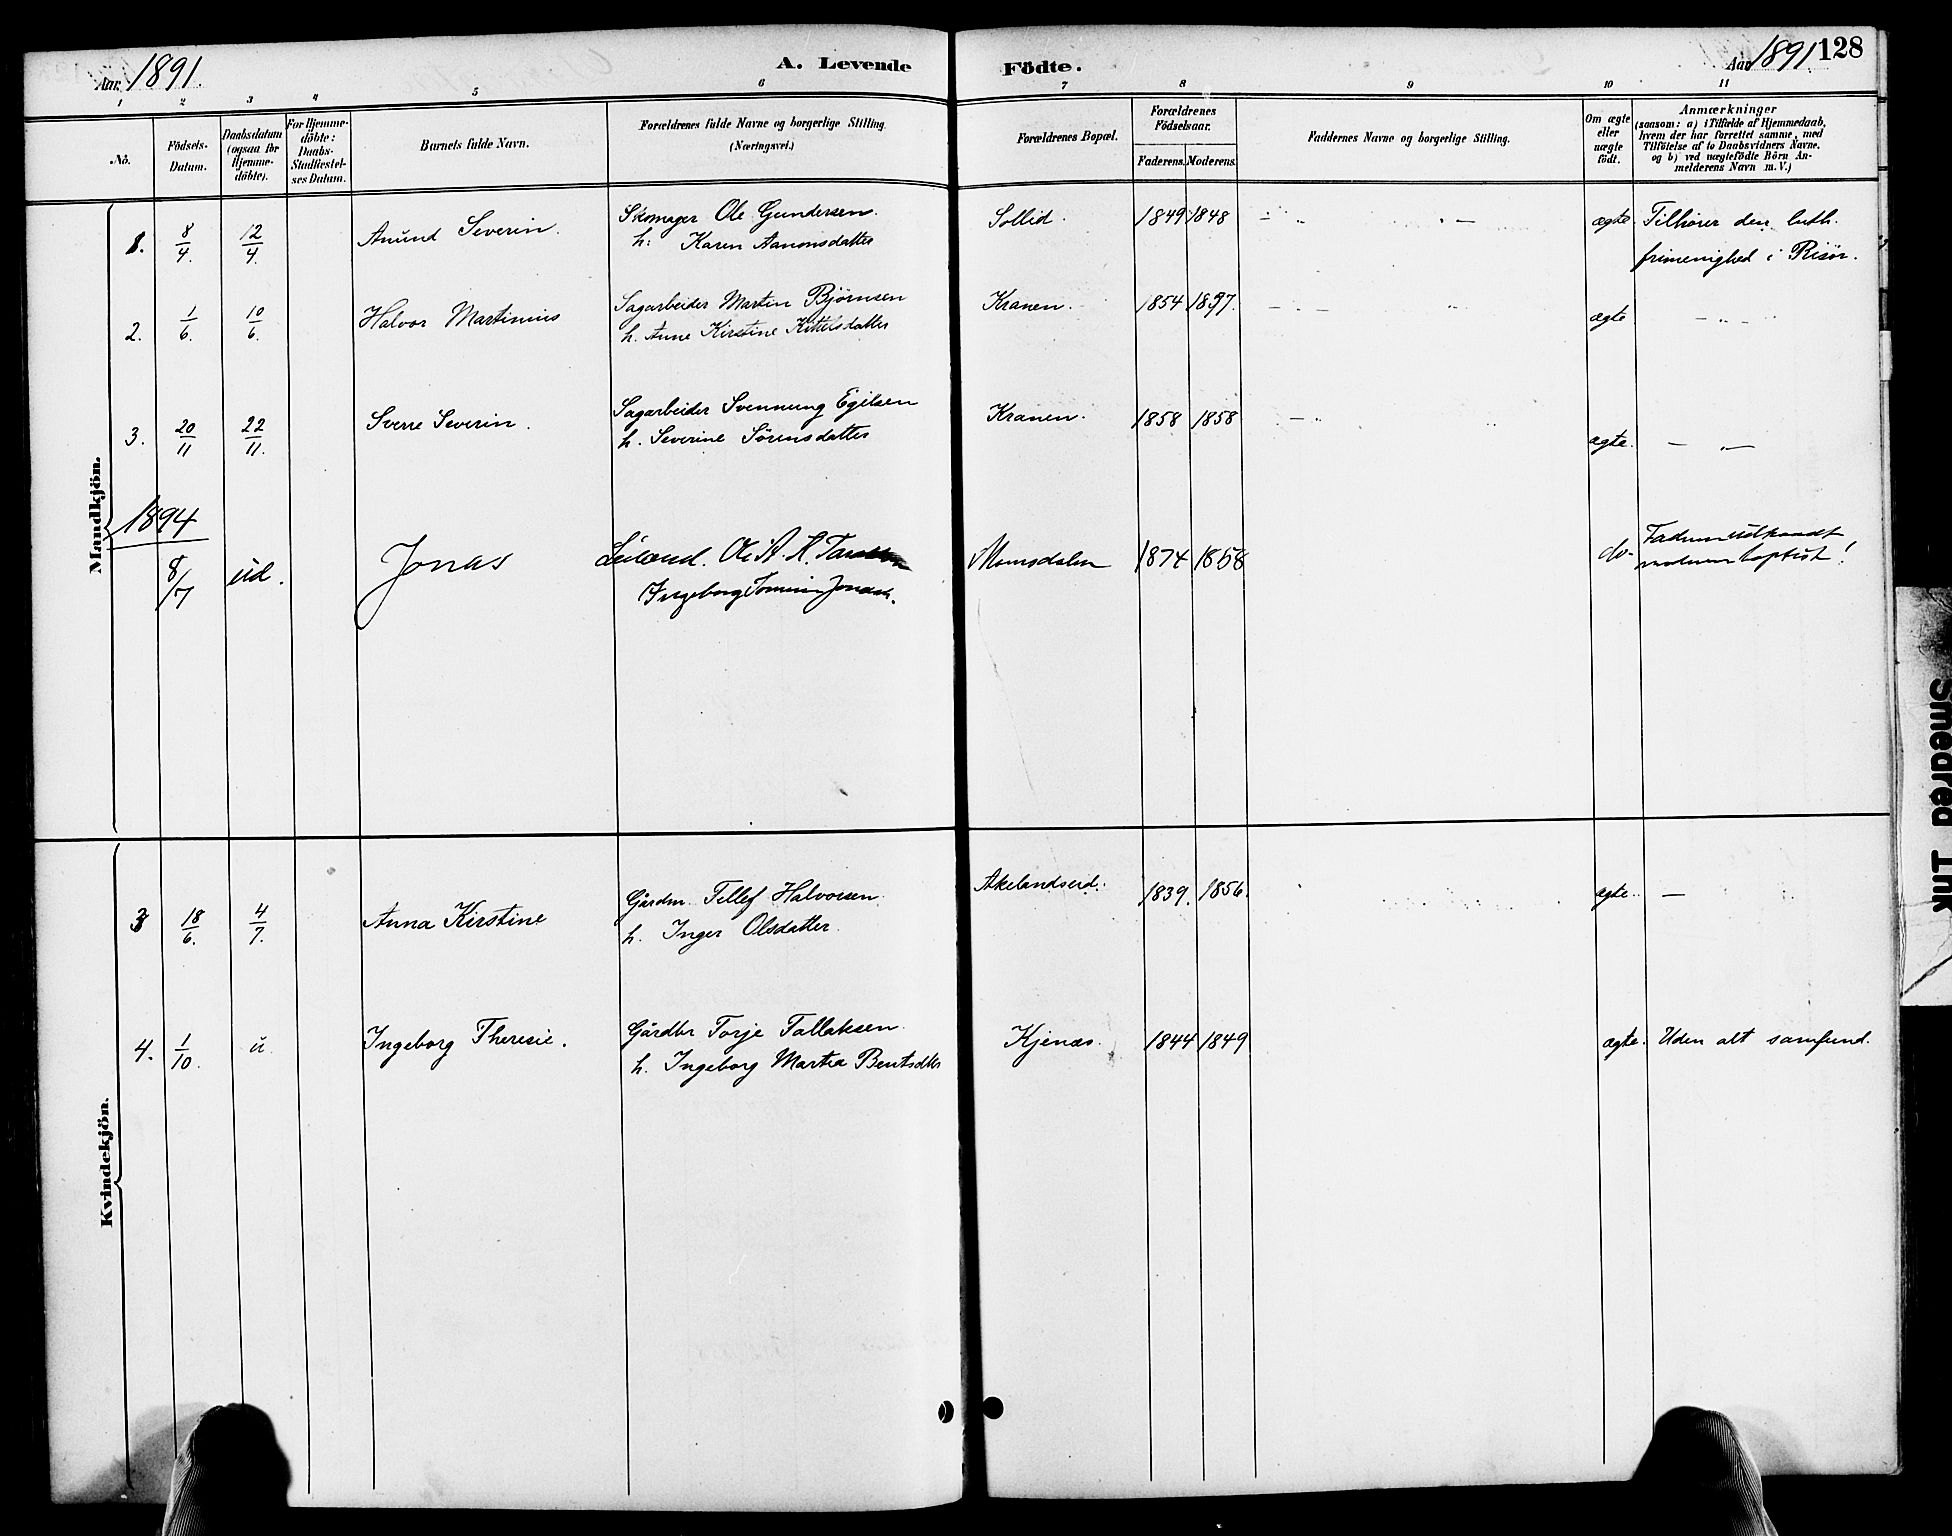 Aar 1891.
A. Levende Fødte.
Aar 1891 128
1 2 3 4 5 6 7 8 9 10 11
No.
Fødsels-
Datum.
Daabsdatum
(ogsaa for
Hjemme-
døbte).
For Hjemme-
døbte:
Daabs-
Stadfæstel-
ses Datum.
Barnets fulde Navn.
Forældrenes fulde Navne og borgerlige Stilling.
(Næringsvei.)
Forældrenes Bopæl.
Forældrenes
Fødselsaar.
Faderens. Moderens.
Faddernes Navne og borgerlige Stilling.
Om ægte
eller
uægte
født.
Anmærkninger
(saasom: a) i Tilfælde af Hjemmedaab,
hvem der har forrettet samme, med
Tilføielse af to Daabsvidners Navne,
og b) ved uægtefødte Børn An-
melderens Navn m. V.)
Mandkjön.
1. 8/4. 12/4. Anund Severin. Skomager Ole Gundersen. Sollid. 1849 1848 ægte. Tilhører den luth.
h: Karen Aanonsdatter frimenighed i Risør.
2. 1/6. 10/6. Halvor Martinius Sagarbeider Martin Bjørnsen Kranen. 1854 ægte
h. Anne Kirstine Kittelsdatter
3. 20/11 22/11. Sverre Severin. Sagarbeider Svennung Egilsen Kranen. 1858 1858 ægte.
h. Severine Sørensdatter
1894
8/7 ud. Jonas Ole A. R. 1874 1858 do-
Ingeborg moderen baptist!
Kvindekjön.
3 18/6. 4/7. Anna Kirstine Gårdm. Tellef Halvorsen. Akelandseid. 1839. 1856. ægte. —
h. Inger Olsdatter.
4. 1/10. u. Ingeborg Theresie. Gårdbr Torje Tallaksen. Kjenæs. 1844 1849 ægte. Uden alt samfund.
h. Ingeborg Martea Bentsdtter
Smeared Ink